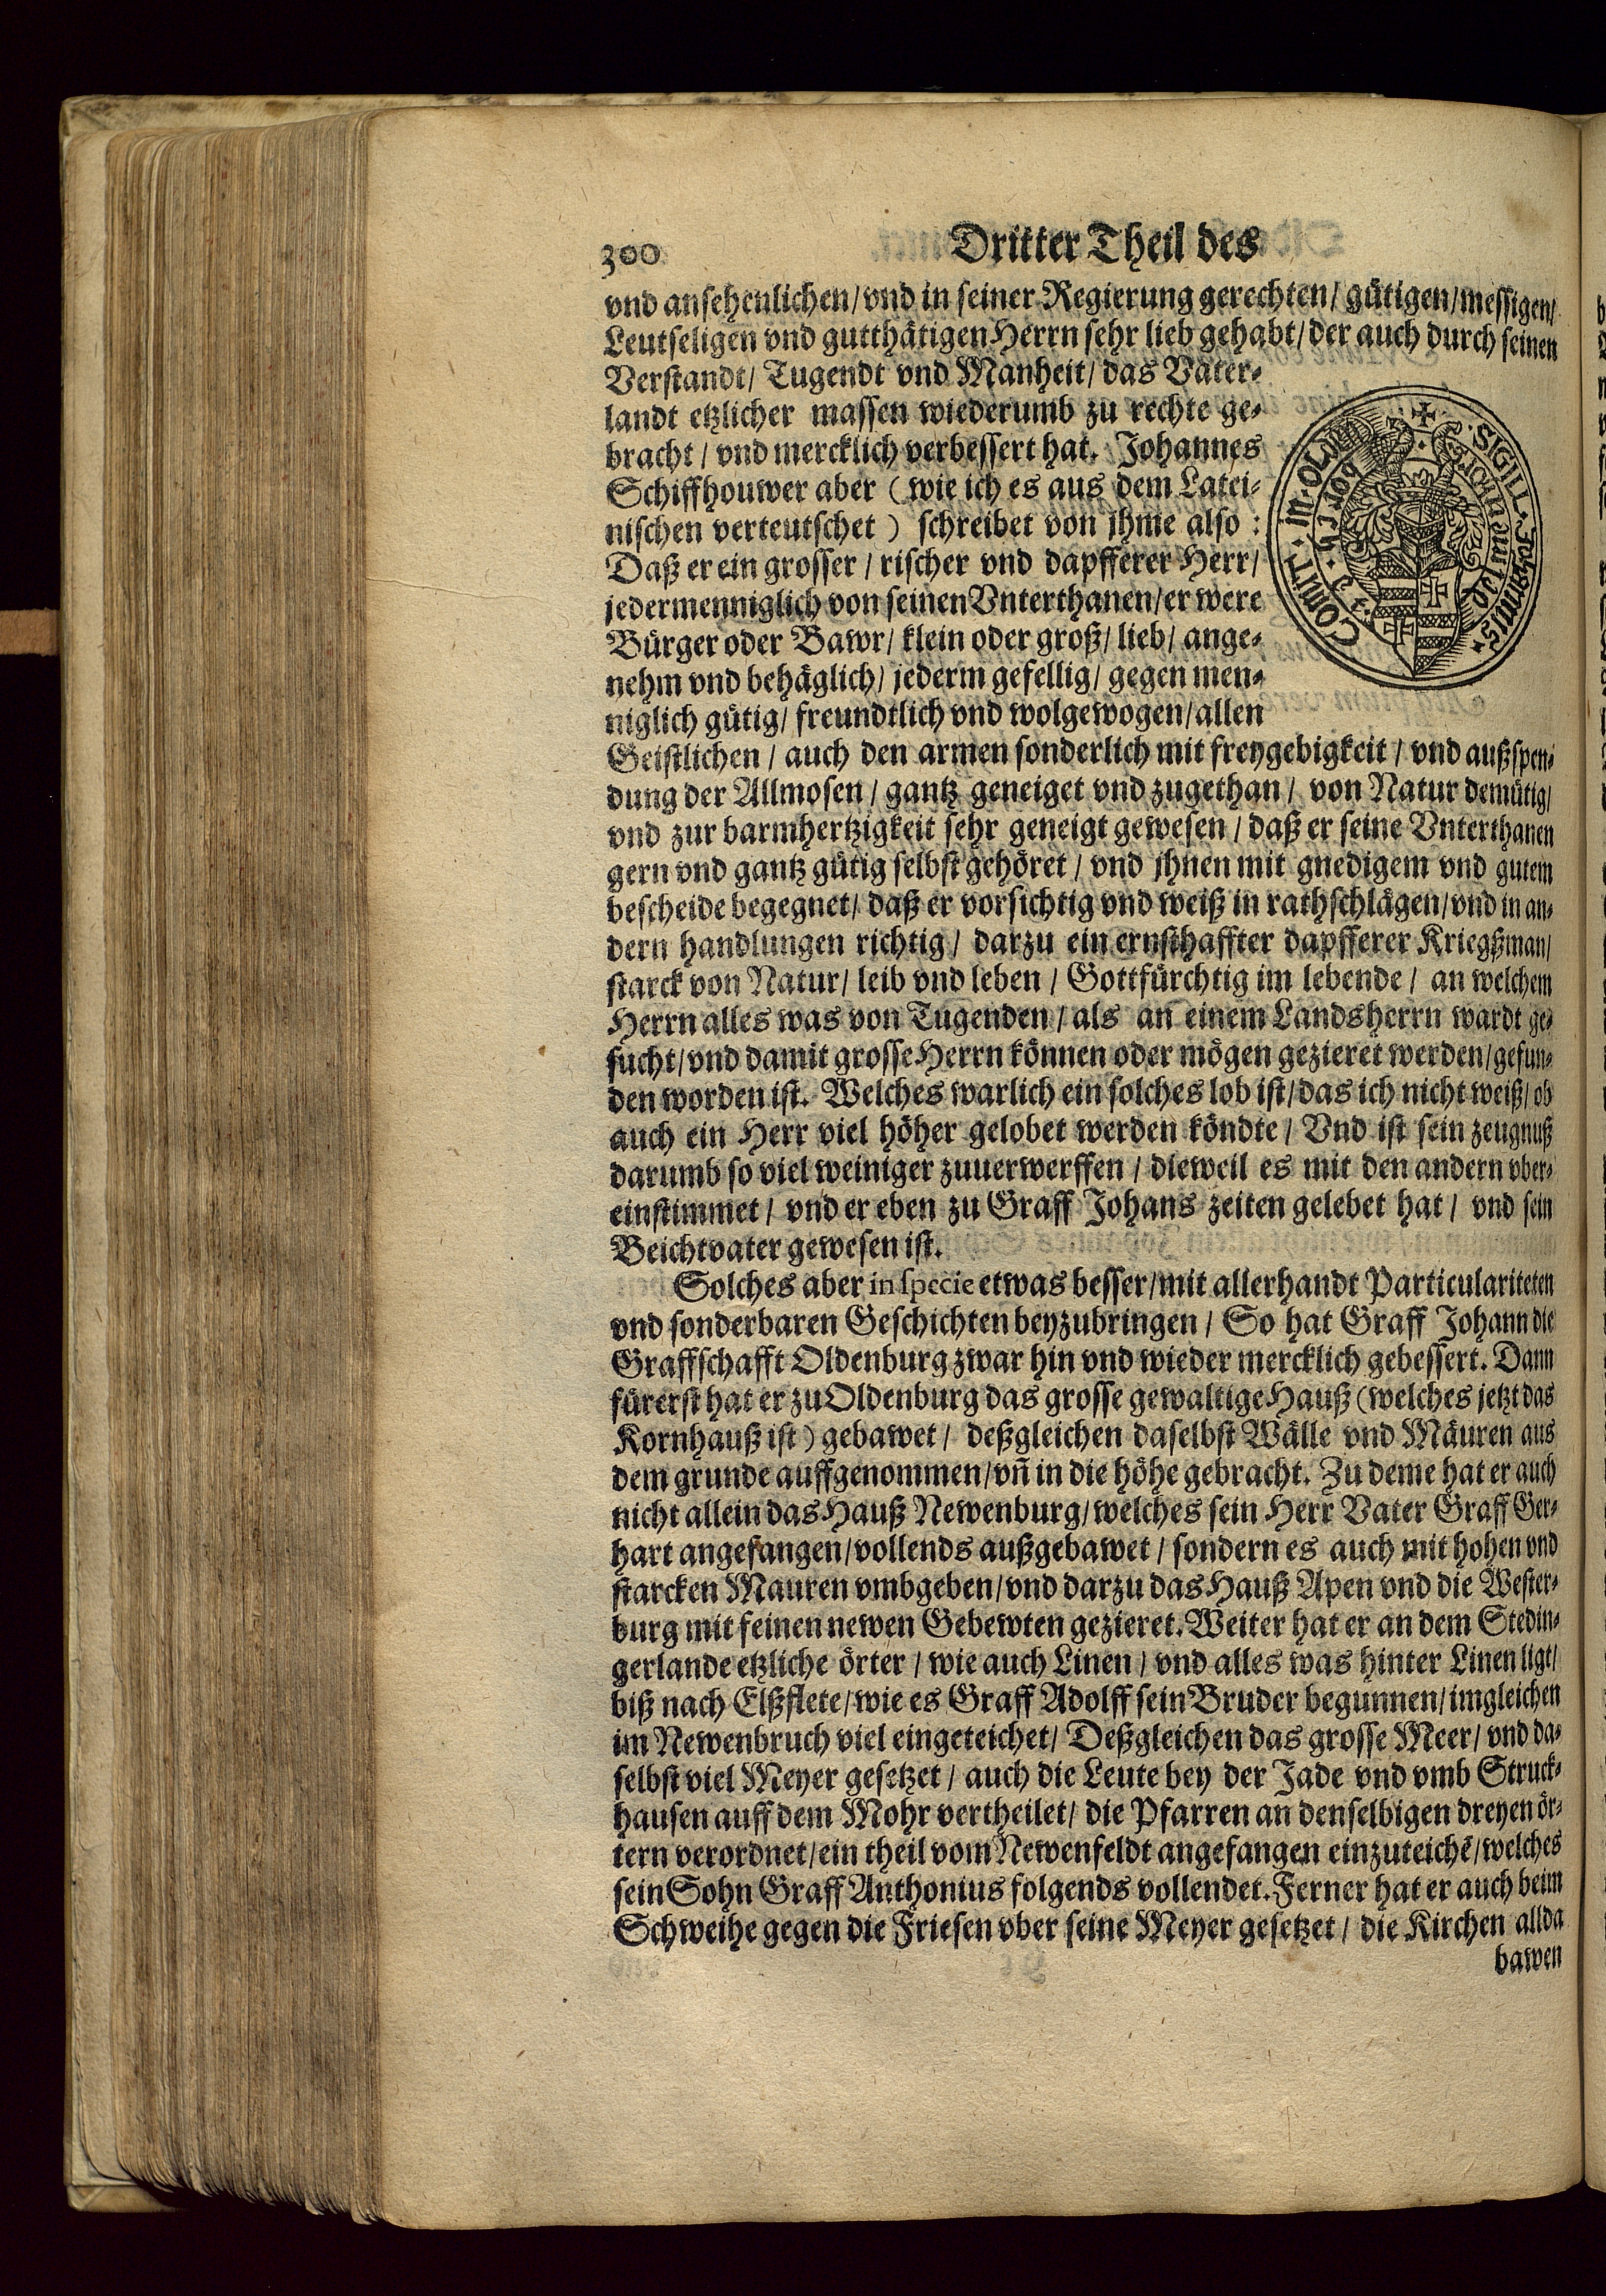 300 Dritter Theil des
vnd ansehenlichen/ vnd in seiner Regierung gerechten/ gütigen/ messigen/
Leutseligen vnd gutthätigen Herrn sehr lieb gehabt/ der auch durch seinen
Verstandt/ Tugendt vnd Manheit/ das Vater⸗
landt etzlicher massen wiederumb zu rechte ge⸗
bracht/ vnd mercklich verbessert hat. Johannes
Schiffhouwer aber (wie ich es aus dem Latei⸗
nischen verteutschet) schreibet von jhme also:
Daß er ein grosser/ rischer vnd dapfferer Herr/
jedermenniglich von seinen Vnterthanen/ er were
Bürger oder Bawr/ klein oder groß/ lieb/ ange⸗
nehm vnd behäglich/ jederm gefellig/ gegen men⸗
niglich gütig/ freundtlich vnd wolgewogen/ allen
Geistlichen/ auch den armen sonderlich mit freygebigkeit/ vnd außspen⸗
dung der Allmosen/ gantz geneiget vnd zugethan/ von Natur demütig/
vnd zur barmhertzigkeit sehr geneigt gewesen/ daß er seine Vnterthanen
gern vnd gantz gütig selbst gehöret/ vnd jhnen mit gnedigem vnd gutem
bescheide begegnet/ daß er vorsichtig vnd weiß in rathschlägen/ vnd in an⸗
dern handlungen richtig/ darzu ein ernsthaffter dapfferer Kriegßman/
starck von Natur/ leib vnd leben/ Gottfürchtig im lebende/ an welchem
Herrn alles was von Tugenden/ als an einem Landsherrn wardt ge⸗
sucht/ vnd damit grosse Herrn können oder mögen gezieret werden/ gefun⸗
den worden ist. Welches warlich ein solches lob ist/ das ich nicht weiß/ ob
auch ein Herr viel höher gelobet werden köndte/ Vnd ist sein zeugnuß
darumb so viel weiniger zuuerwerffen/ dieweil es mit den andern vber⸗
einstimmet/ vnd er eben zu Graff Johans zeiten gelebet hat/ vnd sein
Beichtvater gewesen ist.
Solches aber in specie etwas besser/ mit allerhandt Particulariteten
vnd sonderbaren Geschichten beyzubringen/ So hat Graff Johann die
Graffschafft Oldenburg zwar hin vnd wieder mercklich gebessert. Dann
fürerst hat er zu Oldenburg das grosse gewaltige Hauß (welches jetzt das
Kornhauß ist) gebawet/ deßgleichen daselbst Wälle vnd Mäuren aus
dem grunde auffgenommen/ vn̄ in die höhe gebracht. Zu deme hat er auch
nicht allein das Hauß Newenburg/ welches sein Herr Vater Graff Ger⸗
hart angefangen/ vollends außgebawet/ sondern es auch mit hohen vnd
starcken Mauren vmbgeben/ vnd darzu das Hauß Apen vnd die Wester⸗
burg mit feinen newen Gebewten gezieret. Weiter hat er an dem Stedin⸗
gerlande etzliche örter/ wie auch Linen/ vnd alles was hinter Linen ligt/
biß nach Elßflete/ wie es Graff Adolff sein Bruder begunnen/ imgleichen
im Newenbruch viel eingeteichet/ Deßgleichen das grosse Meer/ vnd da⸗
selbst viel Meyer gesetzet/ auch die Leute bey der Jade vnd vmb Struck⸗
hausen auff dem Mohr vertheilet/ die Pfarren an denselbigen dreyen ör⸗
tern verordnet/ ein theil vom Newenfeldt angefangen einzuteichē/ welches
sein Sohn Graff Anthonius folgends vollendet. Ferner hat er auch beim
Schweihe gegen die Friesen vber seine Meyer gesetzet/ die Kirchen allda
bawen
SIGILL. Johannis
COMIT. in. OLD